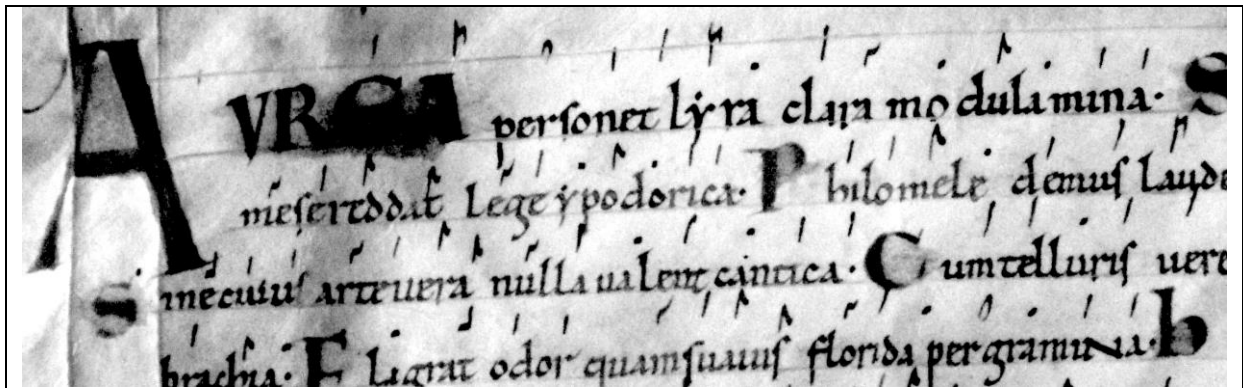 AVREA personet lyra clara modulamina. S
mese reddat lege ypodorica. Philomele demus laude
Sine cuius arte uera nulla ualent cantica. Cum telluris uere
brachia. Flagrat odor quam suauis florida per gramina. h